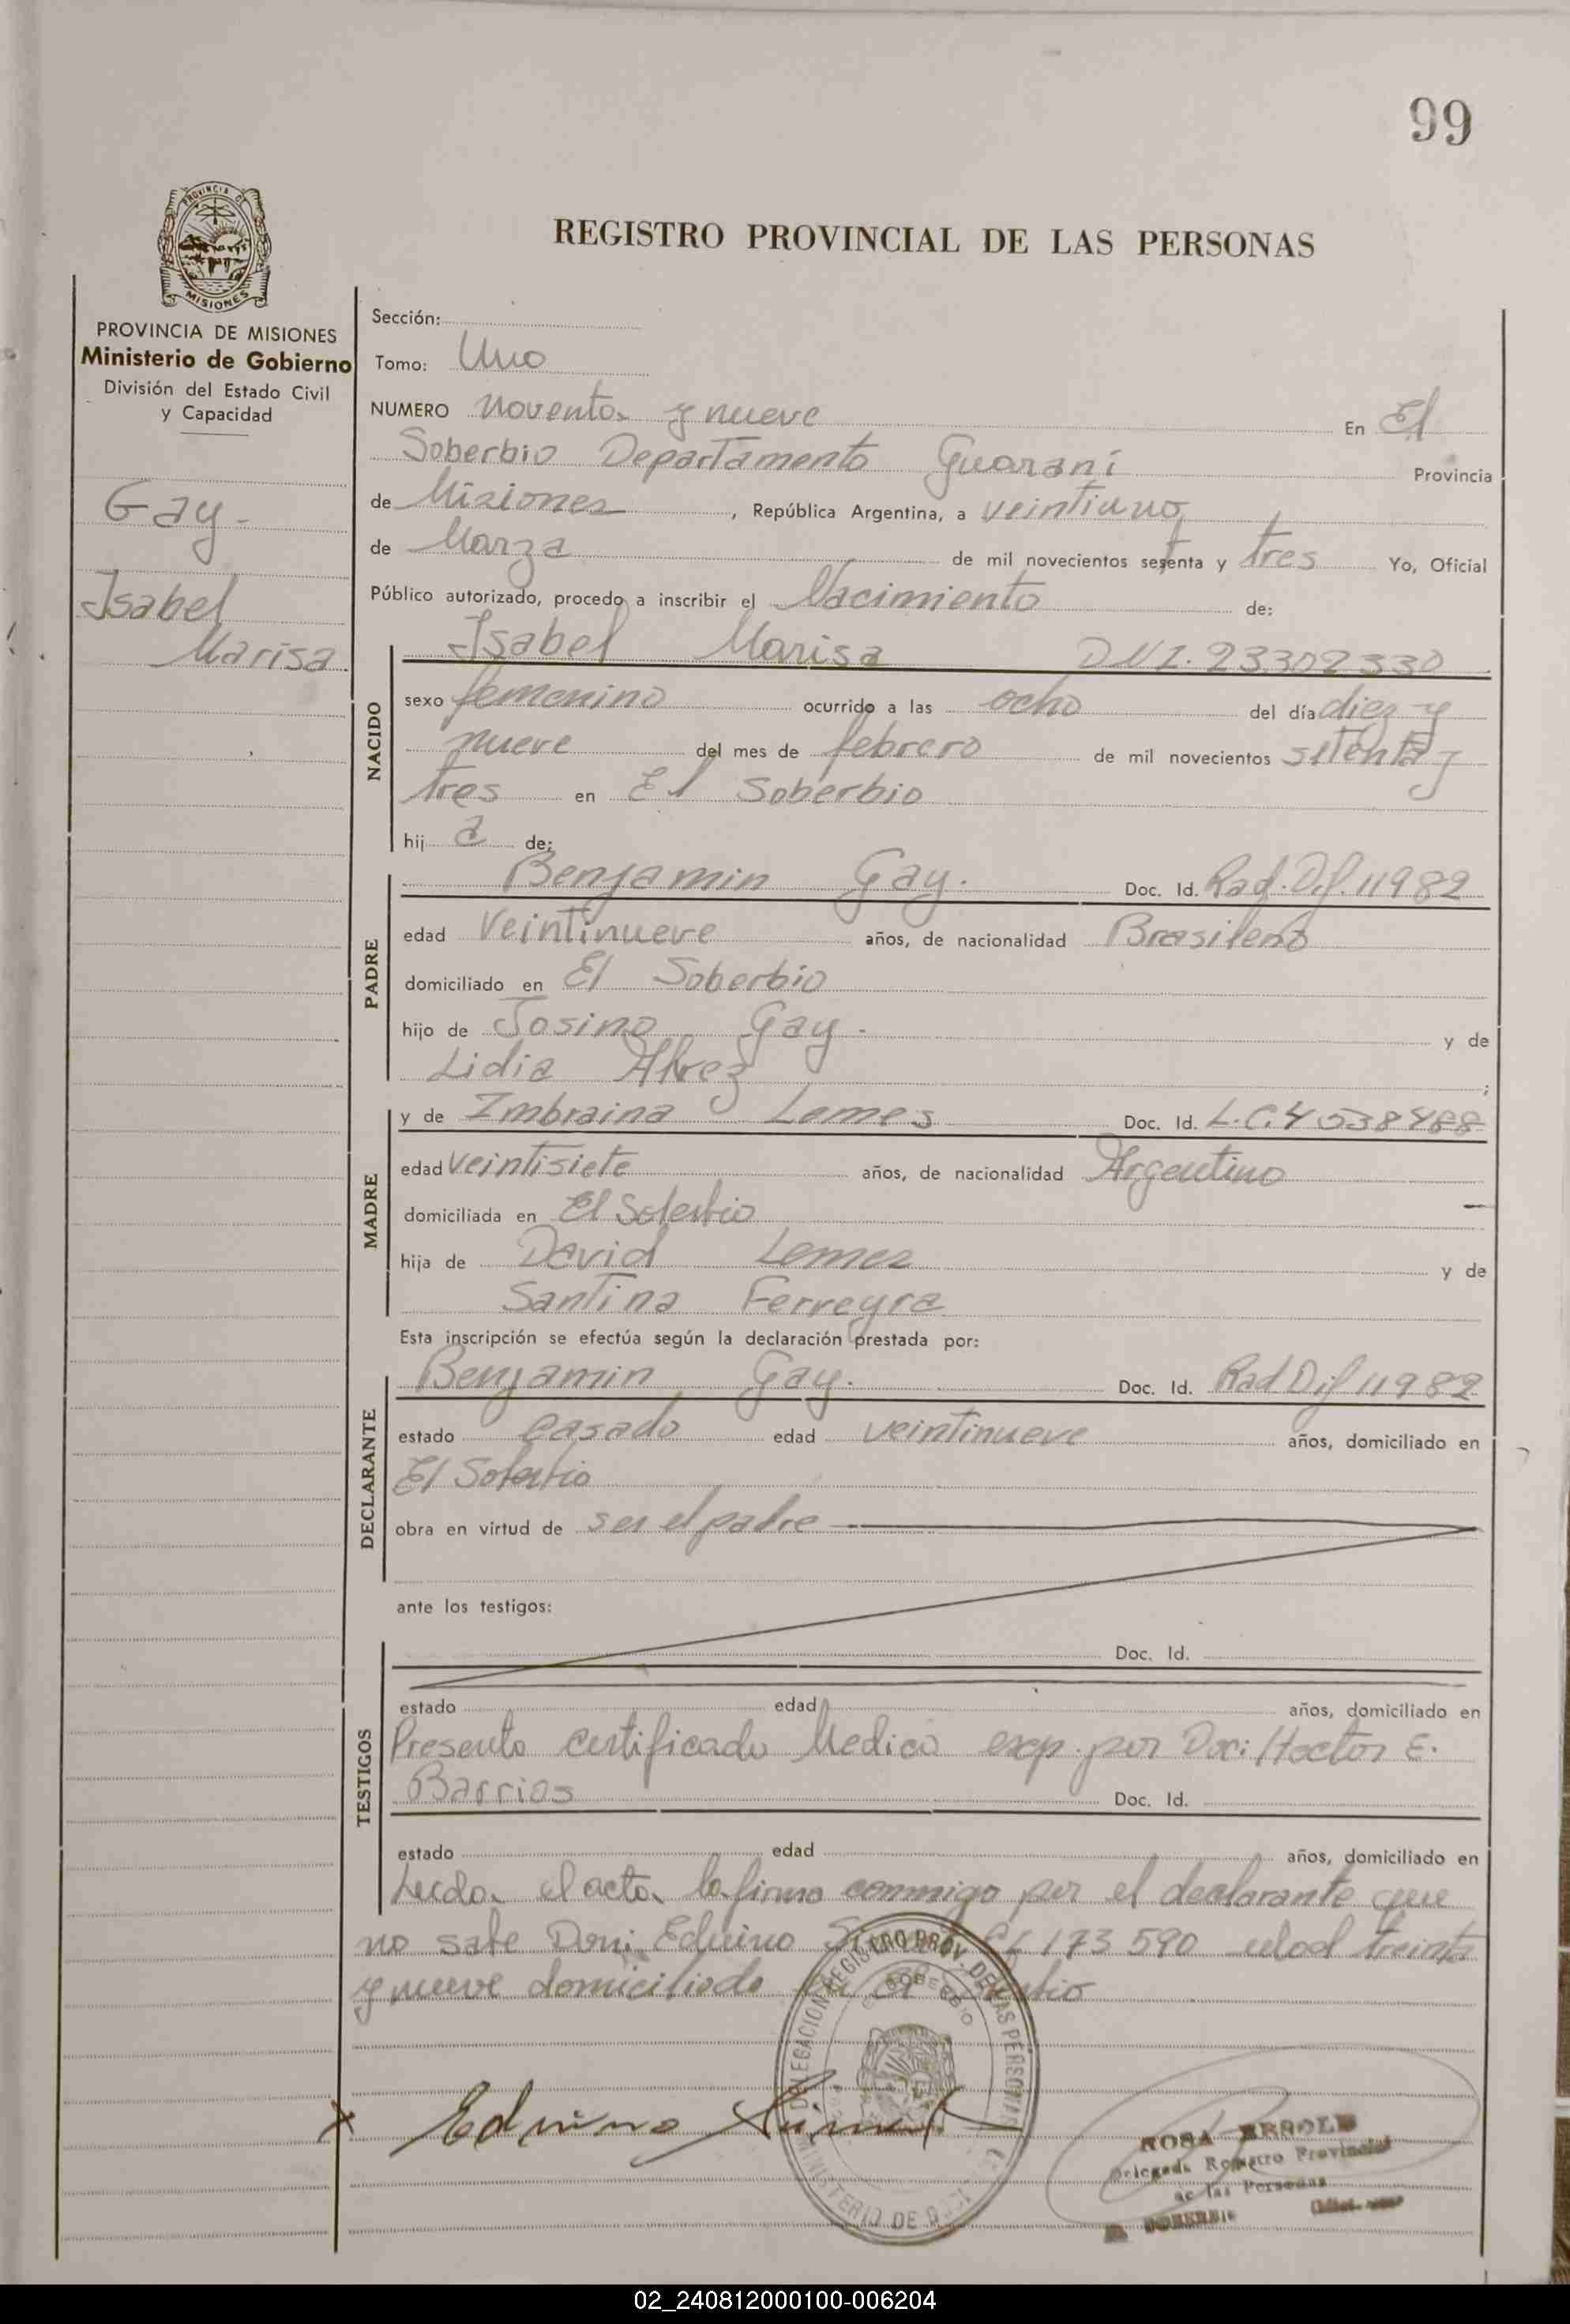 99
PROVINCIA DE
MISIONES
REGISTRO PROVINCIAL DE LAS PERSONAS
PROVINCIA DE MISIONES
Ministerio de Gobierno
División del Estado Civil
y Capacidad
Gay-
Isabel
Marisa
Sección:
Tomo: Uno
NUMERO noventa y nueve En El
Soberbio Departamento Guaraní Provincia
de Misiones, República Argentina, a veintiuno
de Marzo de mil novecientos setenta y tres Yo, Oficial
Público autorizado, procedo a inscribir el Nacimiento de:
NACIDO
Isabel Marisa DNI. 23.302330
sexo femenino ocurrido a las ocho del día diez y
nueve del mes de febrero de mil novecientos setenta y
tres en El Soberbio
hij a de:
PADRE
Benjamin Gay. Doc. Id. Rad. Dif. 11982
edad Veintinueve años, de nacionalidad Brasileño
domiciliado en El Soberbio
hijo de Josino Gay. y de
Lidia Alvez ;
MADRE
y de Imbraina Lemes Doc. Id. L.C. 4 538488
edad Veintisiete años, de nacionalidad Argentino
domiciliada en El Soberbio
hija de David Lemes y de
Santina Ferreyra
Esta inscripción se efectúa según la declaración prestada por:
DECLARANTE
Benjamin Gay. Doc. Id. Rad Dif 11982
estado casado edad veintinueve años, domiciliado en
El Soberbio
obra en virtud de ser el padre
ante los testigos:
TESTIGOS
Doc. Id.
estado edad años, domiciliado en
Presento certificado Medico exp. por Doc: Hector E.
Barrios Doc. Id.
estado edad años, domiciliado en
Leida el acta la firma conmigo por el declarante que
no sabe Don: Eduino 173 590 edad treinta
y nueve domiciliado en El Soberbio
DELEGACION REGISTRO PROV. DE LAS PERSONAS
EL SOBERBIO
MINISTERIO DE
Eduino
ROSA
Delegada Registro Provincial
de las Personas
EL SOBERBIO
02_240812000100-006204